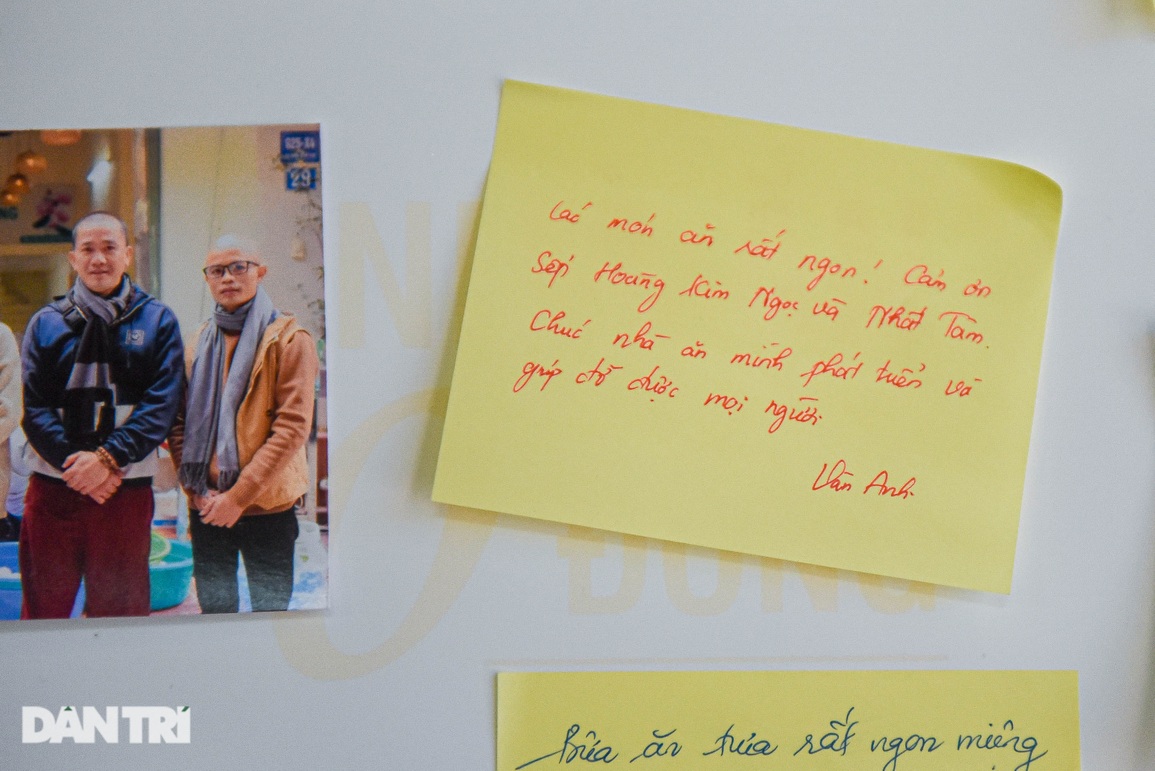 29
Các món ăn rất ngon! Cảm ơn
Sếp Hoàng Kim Ngọc và Nhất Tâm.
Chúc nhà ăn mình phát triển và
giúp đỡ được mọi người
Vân Anh.
ĐỒNG
Bữa ăn trưa rất ngon miệng
DÂN TRÍ